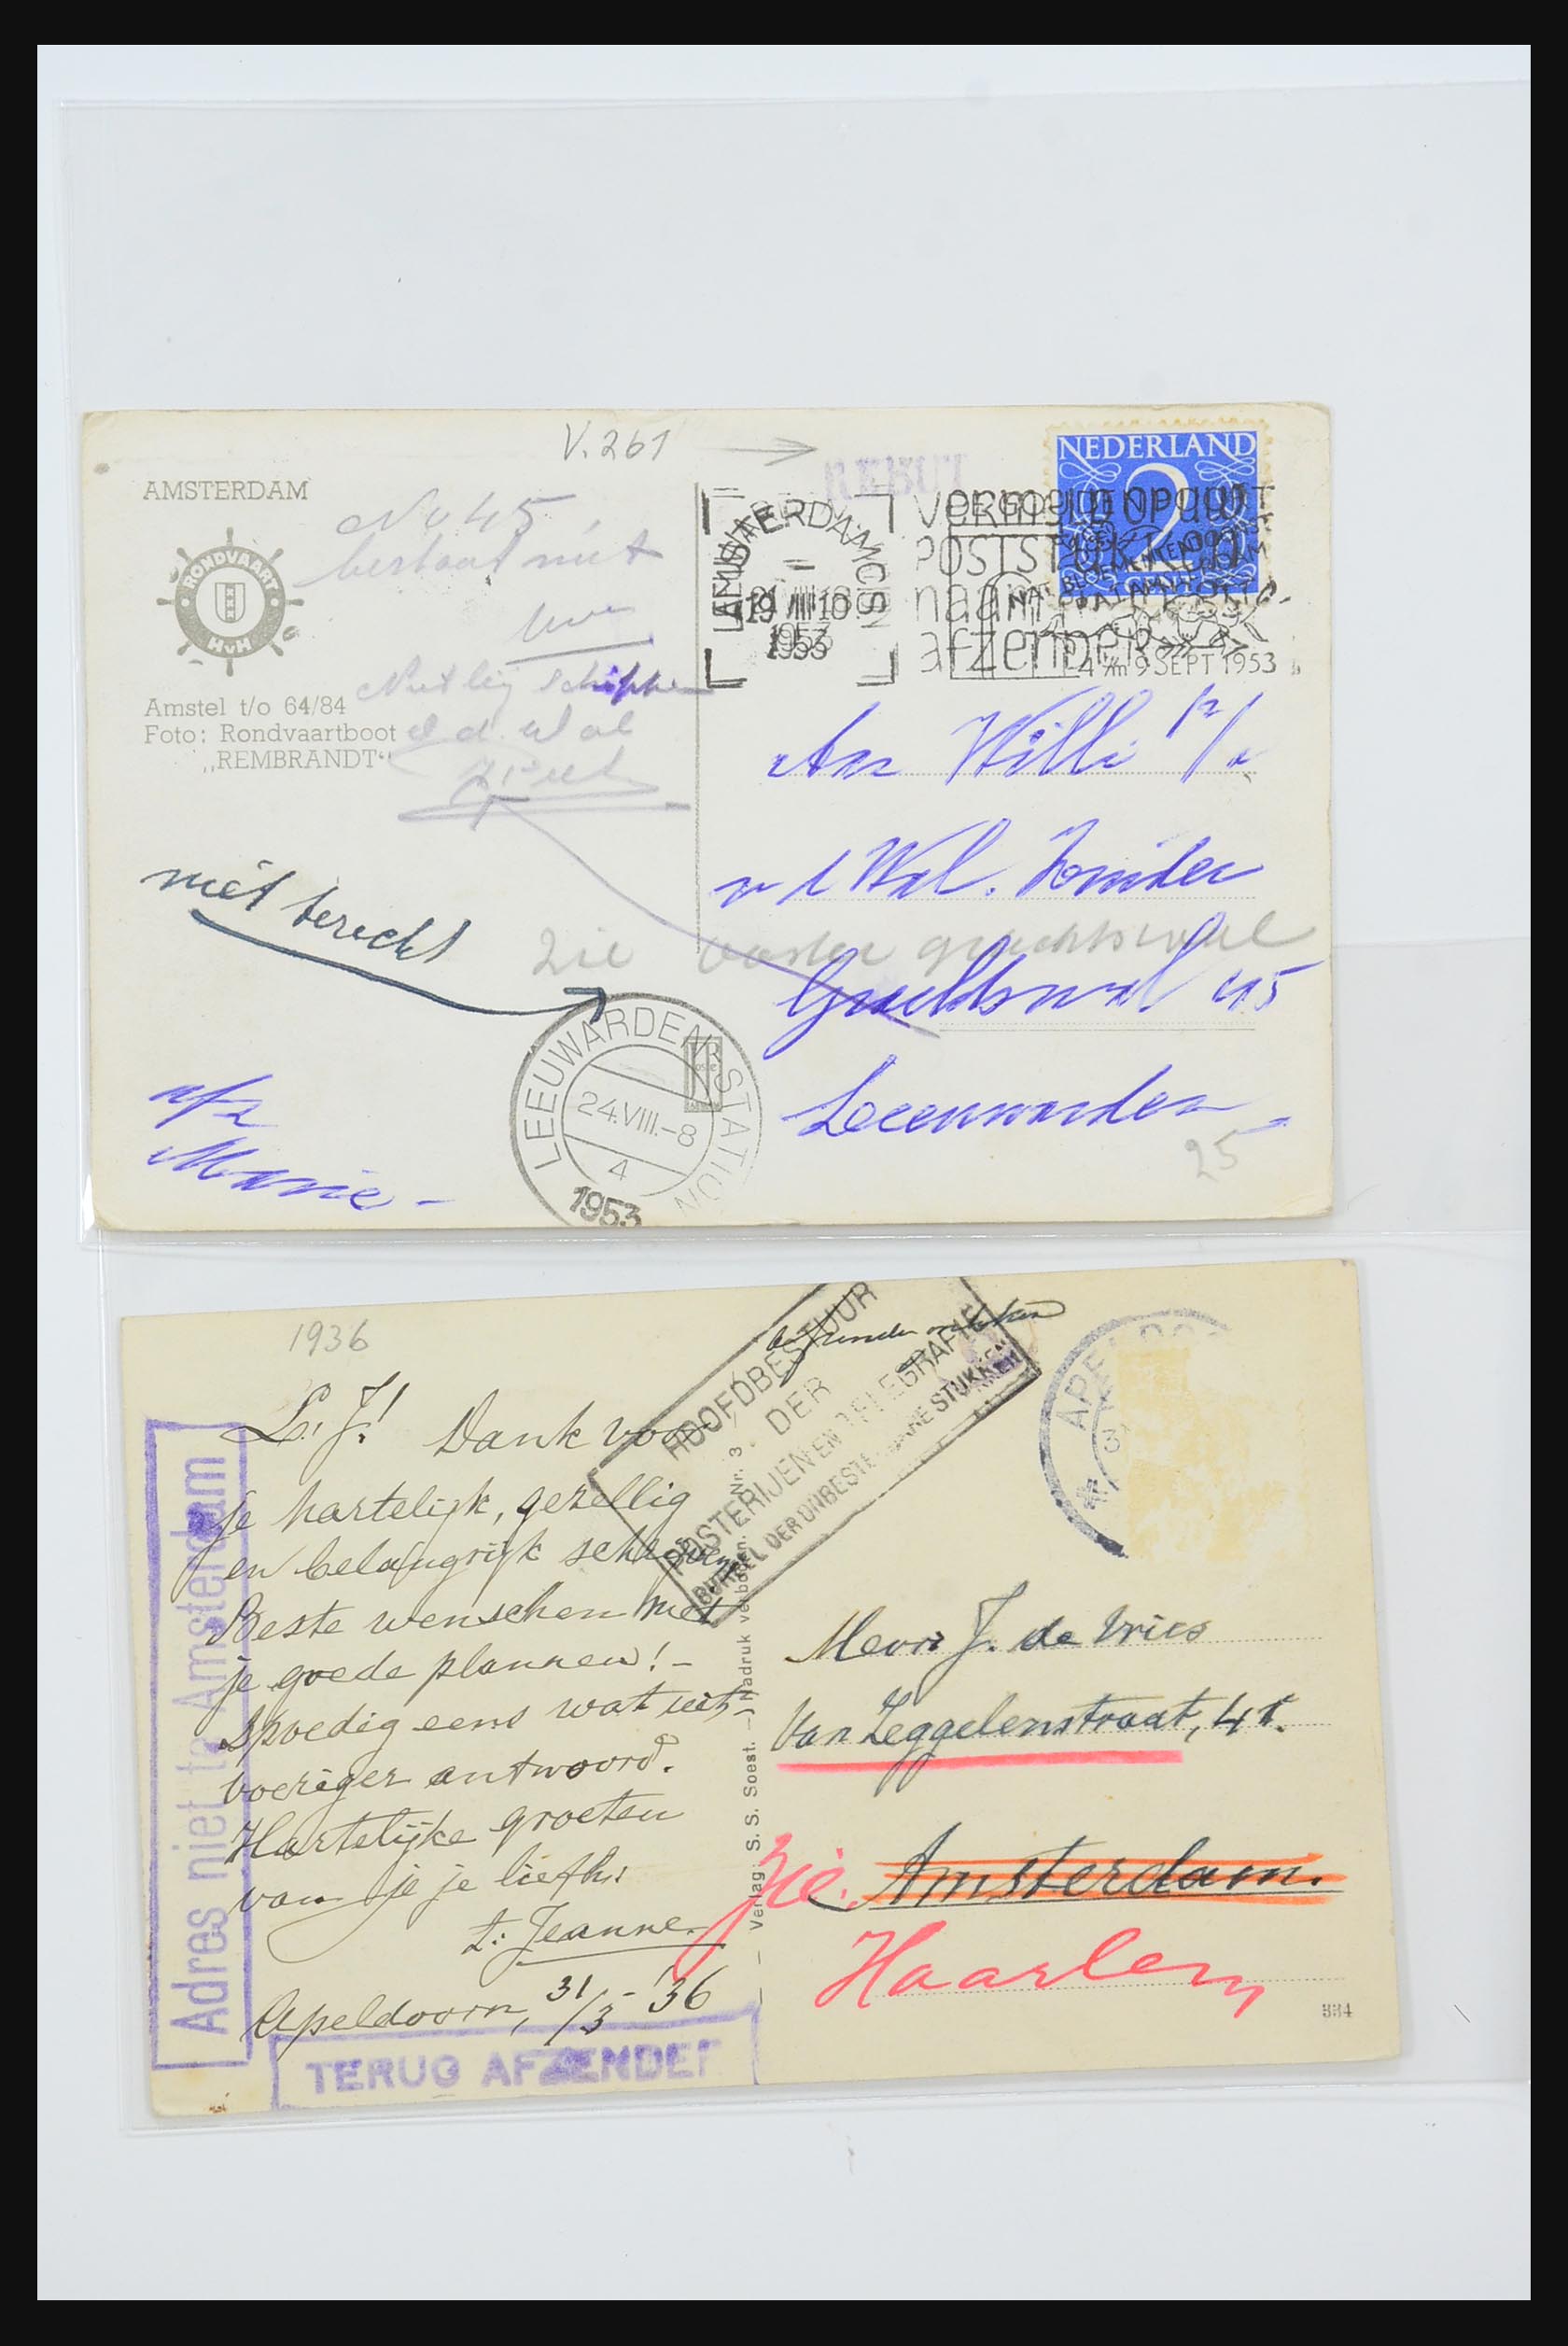 V. 261
REBUT
AMSTERDAM
No 45
bestaat niet
RONDVAART
HvH
Amstel t/o 64/84
Foto: Rondvaartboot
„REMBRANDT“
Niet bij schipper
a d wal
niet terecht
afz
Marie -
NEDERLAND
2
AMSTERDAM C.S.
1953
POSTSTUKKEN
naam
afzender
9 SEPT 1953
An Willi
v d Wal. Tuinder
zie ooster grachtswal
Grachtswal 45
Leeuwarden
25
LEEUWARDEN STATION
24.VIII.-8
4
1953
1936
HOOFDBESTUUR
DER
POSTERIJEN EN TELEGRAFIE
BUREEL DER ONBESTELBARE STUKKEN
APELDOORN
L. J.! Dank voor
je hartelijk, gezellig
en belangrijk schrijven
Beste wenschen met
je goede plannen! -
Spoedig eens wat uit-
voeriger antwoord.
Hartelijke groeten
van je je liefh:
t: Jeanne.
Apeldoorn, 31/3 - '36
Adres niet te Amsterdam
TERUG AFZENDER
Verlag: S. S. Soest. — Nadruk verboden. Nr. 3
Mevr J. de Vries
Van Zeggelenstraat, 41.
Zie. Amsterdam.
Haarlem
334